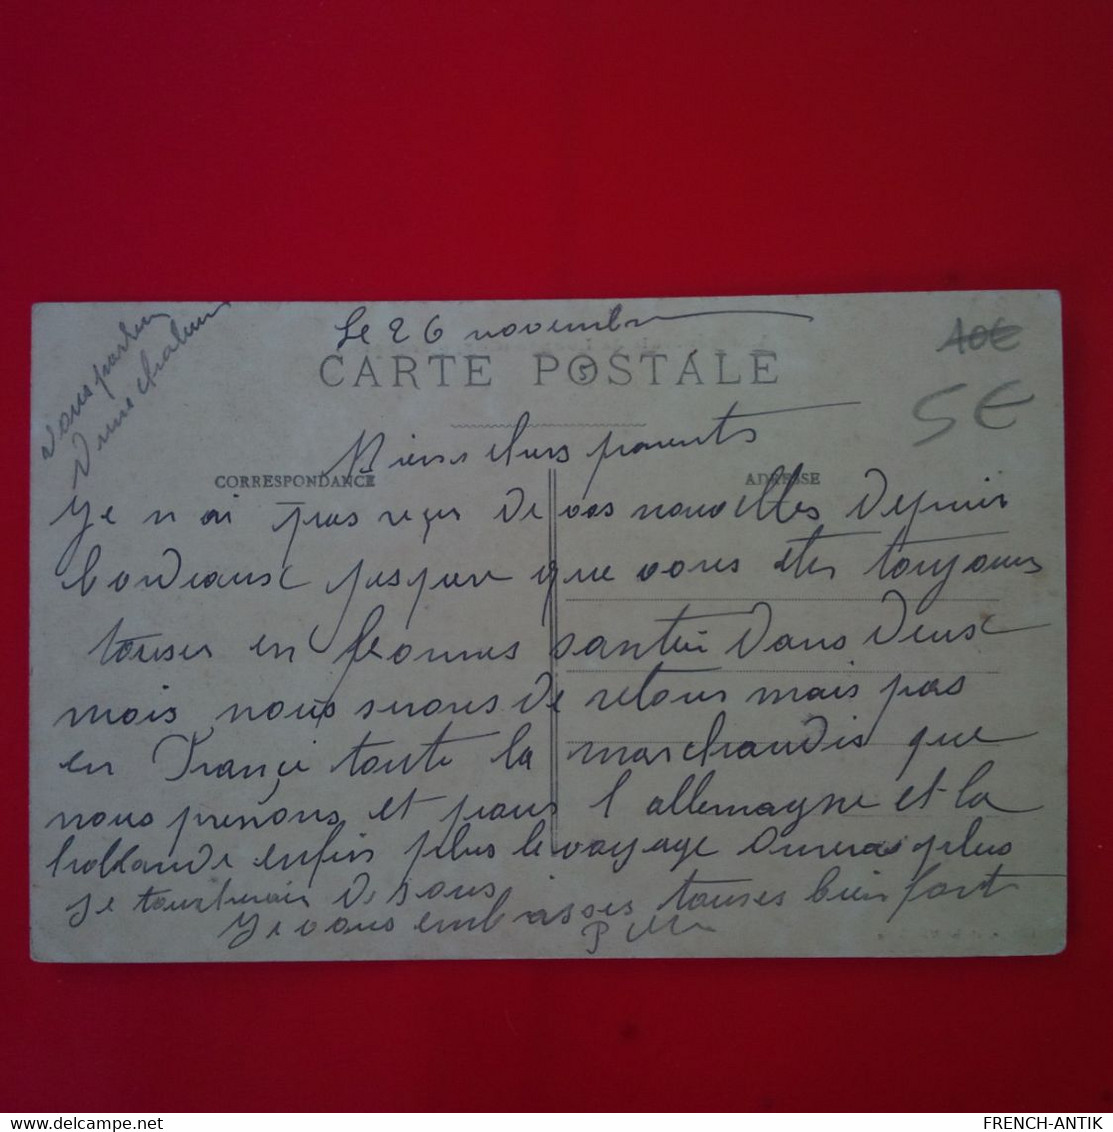 Le 26 novembre
CARTE POSTALE
10€
5€
vous parler
d une chaleur
Miens chers parents
CORRESPONDANCE
ADRESSE
Je n ai pas reçus de vos nouvelles depuis
bordeause jespere que vous etes toujours
touses en bonnes santéi dans deuse
mois nous serons de retour mais pas
en Françe toute la marchandis que
nous prenons et pour l allemagne et la
hollande enfin plus le voyage durera plus
je toucherais de sous
Je vous embrasses touses bien fort
FRENCH-ANTIK
delcampe.net